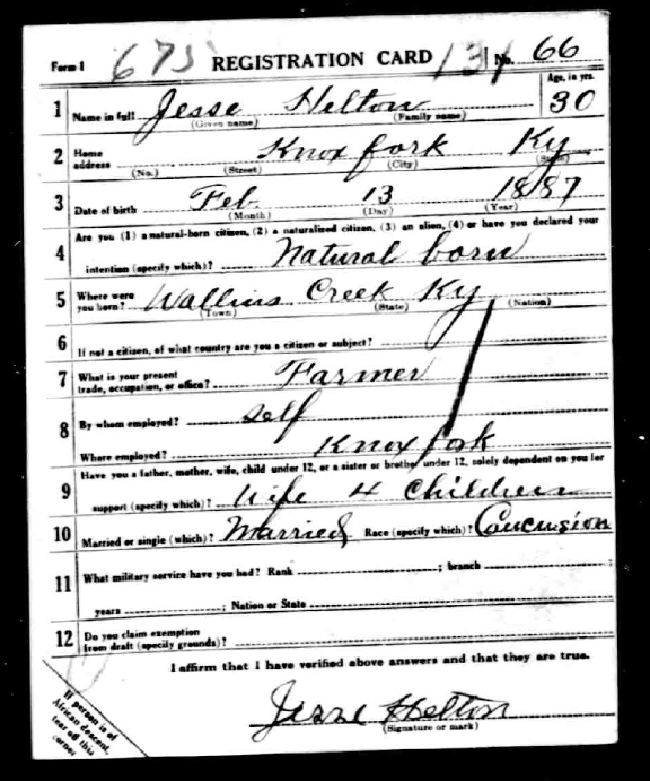 Form 1 675 REGISTRATION CARD 131 No. 66
1 Name in full Jesse Helton Age, in yrs. 30
(Given name) (Family name)
2 Home address Knox fork Ky
(No.) (Street) (City) (State)
3 Date of birth Feb. 13 1887
(Month) (Day) (Year)
Are you (1) a natural-born citizen, (2) a naturalized citizen, (3) an alien, (4) or have you declared your
4 intention (specify which)? Natural born
5 Where were you born? Wallins Creek Ky
(Town) (State) (Nation)
6 If not a citizen, of what country are you a citizen or subject?
7 What is your present trade, occupation, or office? Farmer
8 By whom employed? Self
Where employed? Knox fork
9 Have you a father, mother, wife, child under 12, or a sister or brother under 12, solely dependent on you for
support (specify which)? Wife 4 Children
10 Married or single (which)? Married Race (specify which)? Caucusion
11 What military service have you had? Rank ; branch ;
years ; Nation or State
12 Do you claim exemption
from draft (specify grounds)?
I affirm that I have verified above answers and that they are true.
Jesse Helton
(Signature or mark)
If person is of
African descent,
tear off this
corner